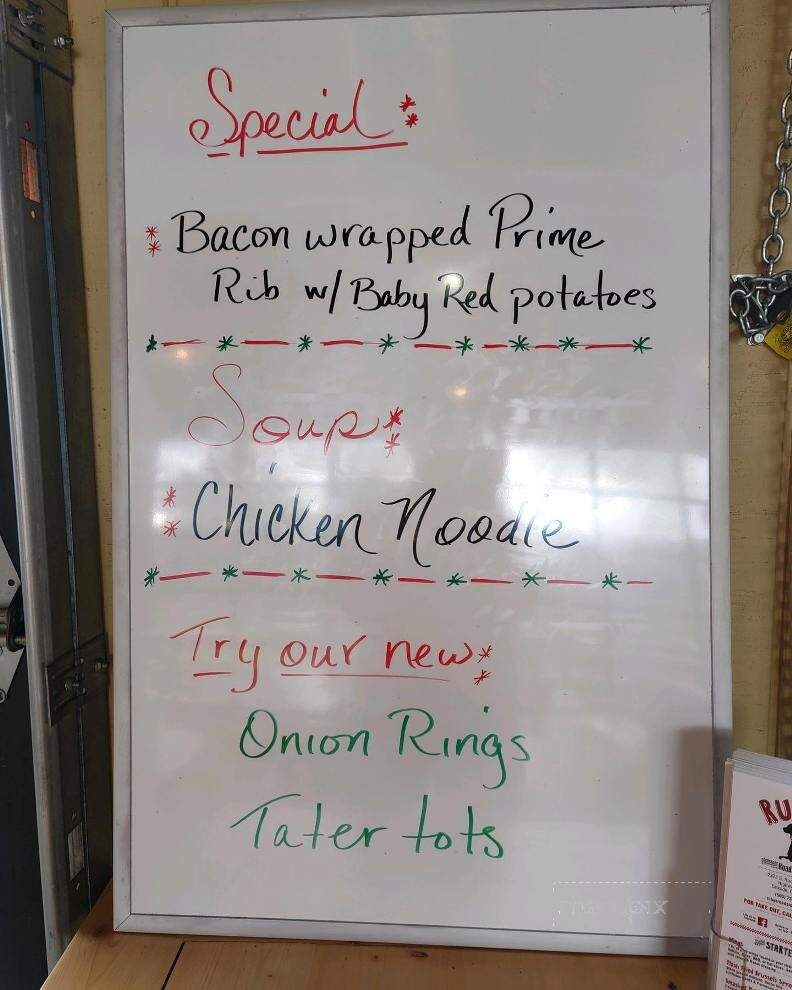 Special:
Bacon wrapped Prime
Rib w/ Baby Red potatoes
Soup:
Chicken Noodle
Try our new:
Onion Rings
Tater tots
RU
FOR TAKE OUT, CAL
STARTE